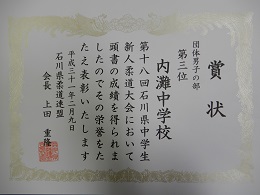 賞状
団体男子の部
第三位
内灘中学校
第十八回石川県中学生
新人柔道大会において
頭書の成績を得られま
したのでその栄誉をた
たえ表彰いたします
平成三十一年二月九日
石川県柔道連盟
会長 上田 重隆